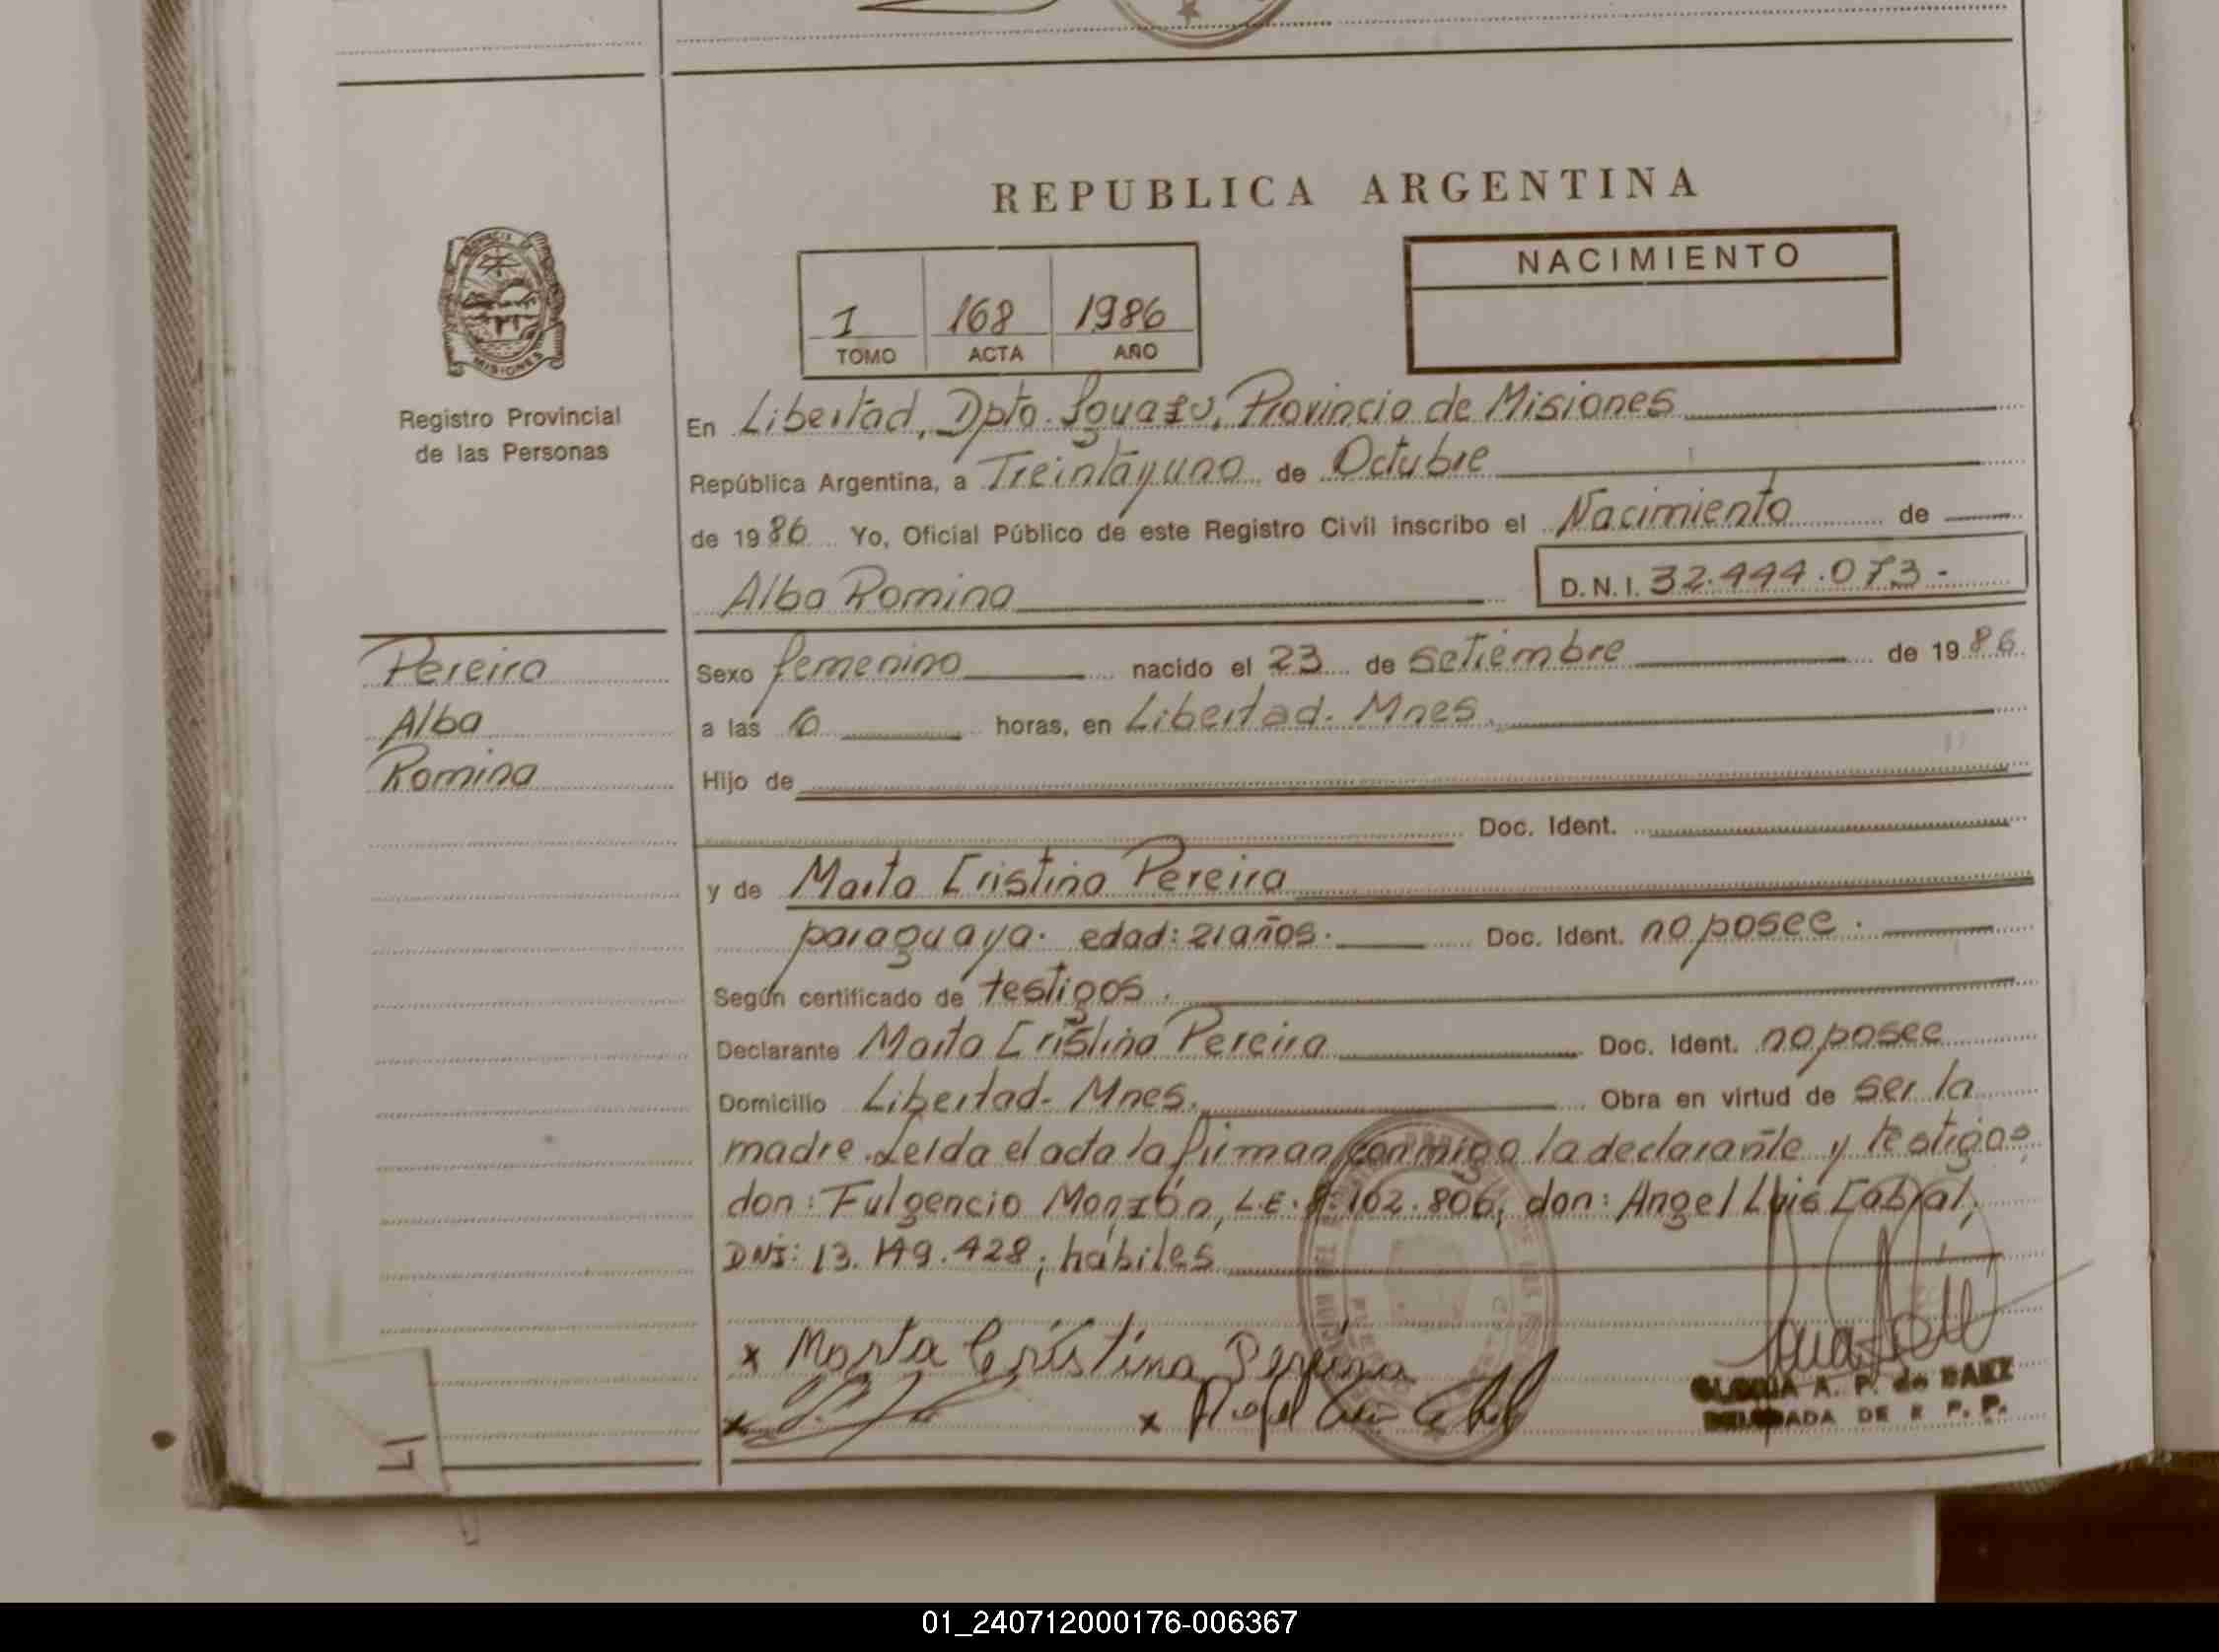 REPUBLICA ARGENTINA
NACIMIENTO
1 168 1986
TOMO ACTA AÑO
MISIONES
Registro Provincial
de las Personas
En Libertad, Dpto. Iguazu, Provincia de Misiones
República Argentina, a Treintayuno de Octubre
de 1986 Yo, Oficial Público de este Registro Civil inscribo el Nacimiento de
Alba Romina D.N.I. 32.444.073.-
Pereira
Alba
Romina
Sexo femenino nacido el 23 de setiembre de 1986
a las horas, en Libertad. Mnes.
Hijo de
Doc. Ident.
y de Marta Cristina Pereira
paraguaya. edad: 21 años. Doc. Ident. no posee.
Según certificado de testigos.
Declarante Marta Cristina Pereira Doc. Ident. no posee
Domicilio Libertad. Mnes. Obra en virtud de ser la
madre. Leida el acta la firman conmigo la declarante y testigos
don: Fulgencio Monzón, L.E. 102.806, don: Angel Luis Cabral,
DNI: 13.149.428; hábiles
x Marta Cristina Pereira
x
x Angel Luis Cabral
GLORIA A. P. de BAEZ
DELEGADA DE R P. P.
01_240712000176-006367